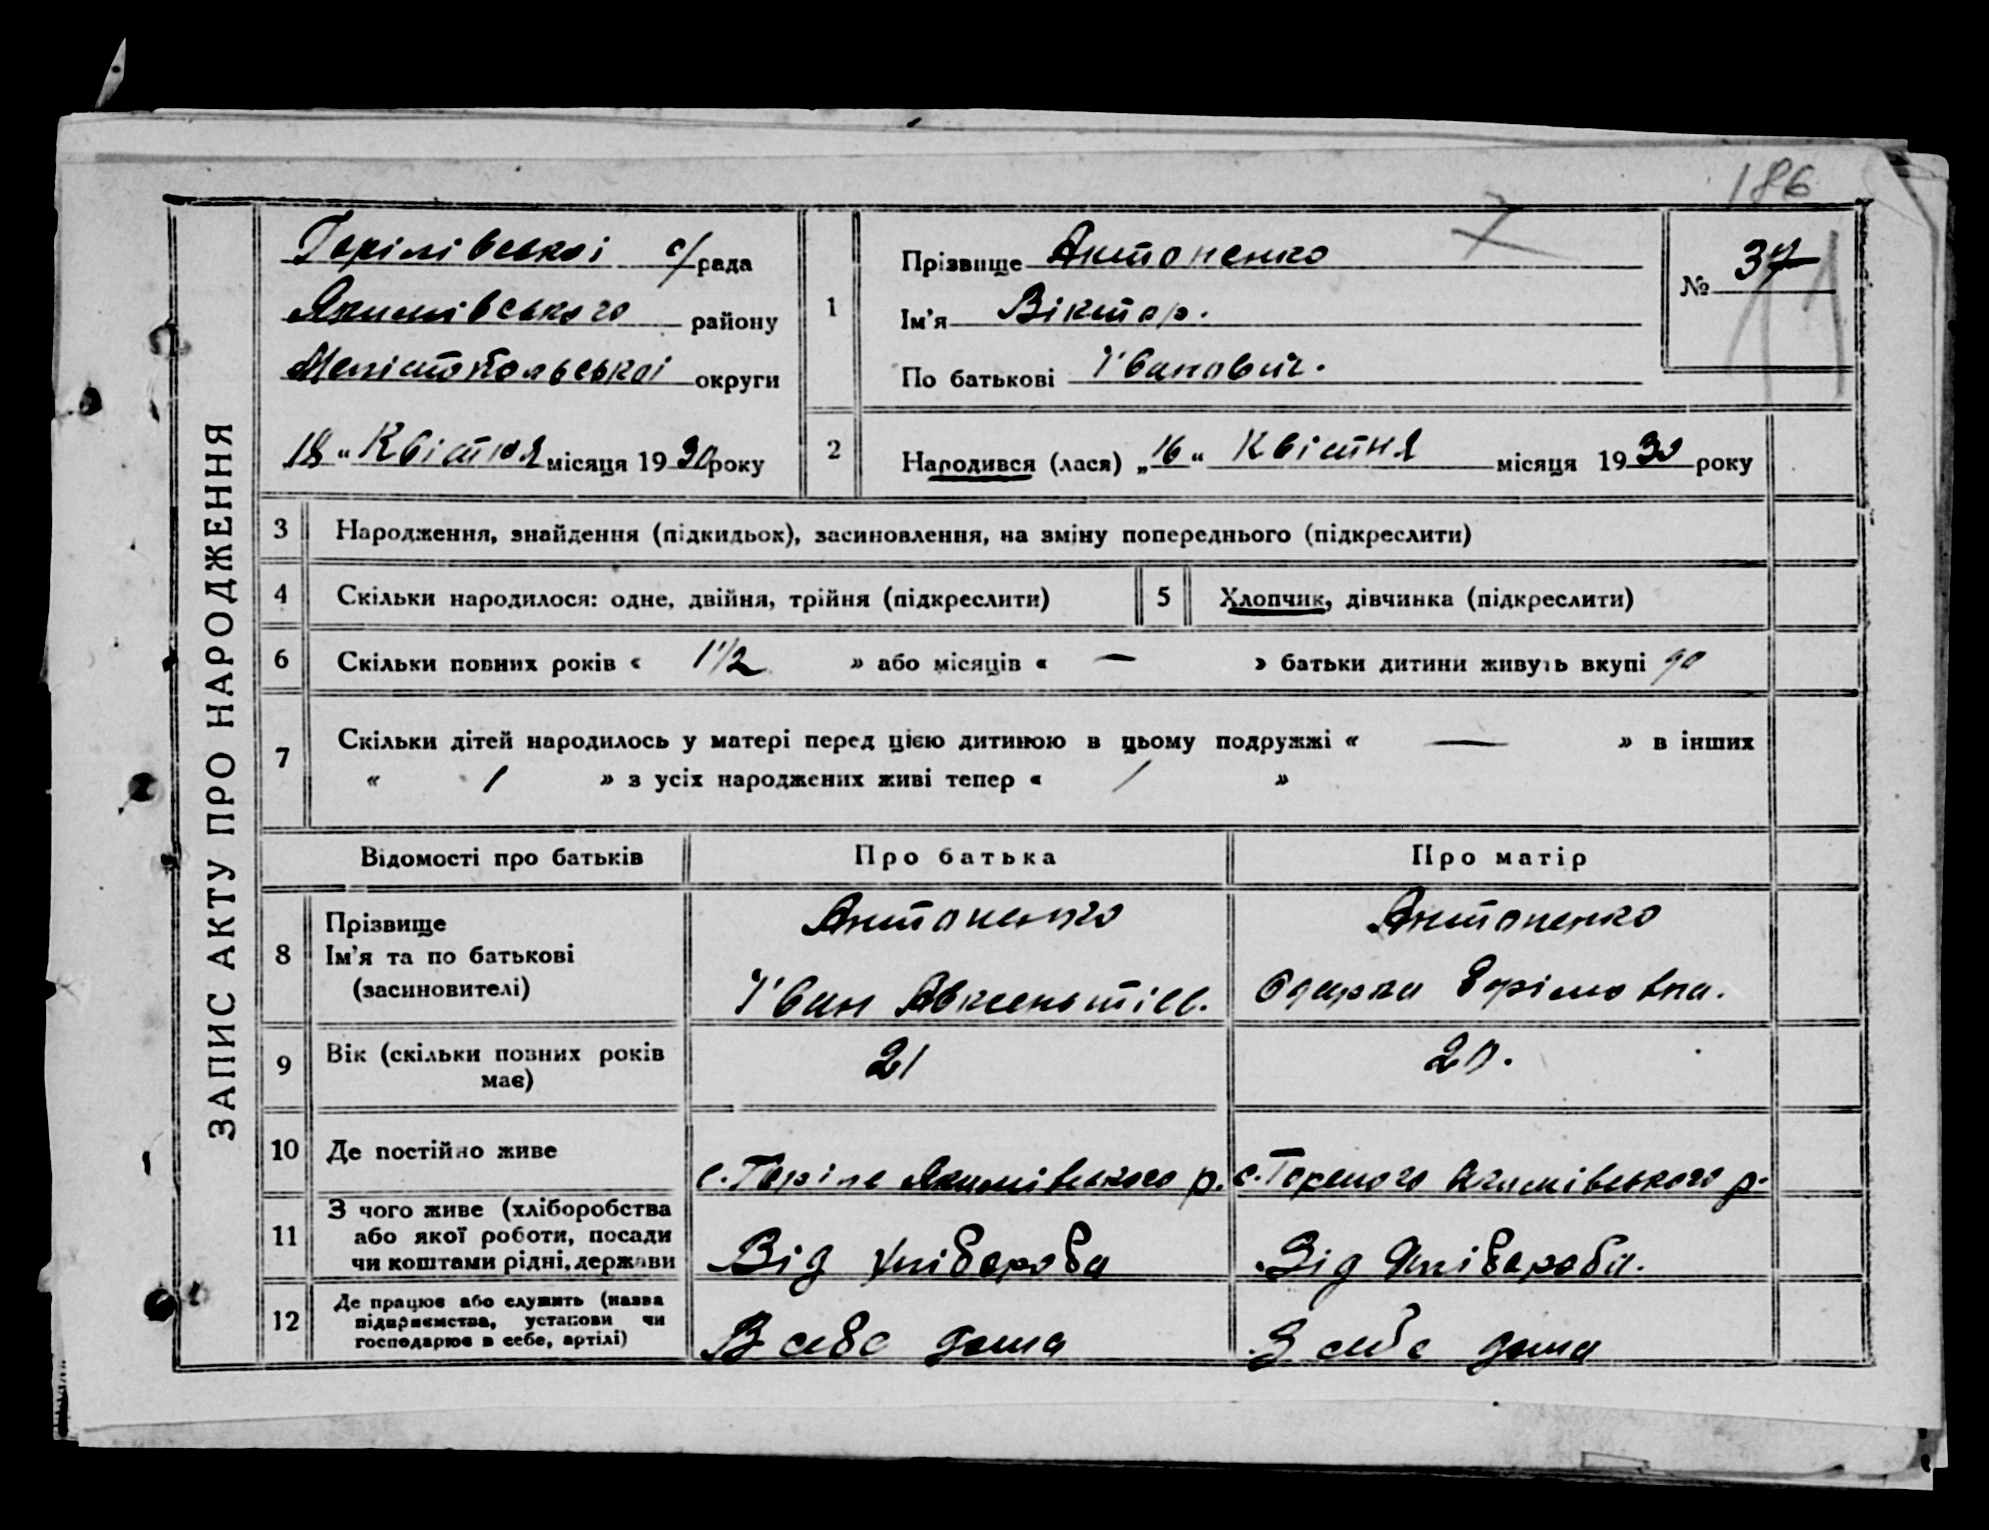 186
ЗАПИС АКТУ ПРО НАРОДЖЕННЯ
Горілівської с/рада
Якимівського району
Мелітопольської округи
18 " Квітня місяця 1930 року
1
Прізвище Антоненко
Ім'я Віктор.
По батькові Іванович.
№ 37
2
Народився (лася) „16“ Квітня місяця 1930 року
3 Народження, знайдення (підкидьок), засиновлення, на зміну попереднього (підкреслити)
4 Скільки народилося: одне, двійня, трійня (підкреслити) 5 Хлопчик, дівчинка (підкреслити)
6 Скільки повних років « 1 1/2 » або місяців « — » батьки дитини живуть вкупі
7 Скільки дітей народилось у матері перед цією дитиною в цьому подружжі « — » в інших
« 1 » з усіх народжених живі тепер « 1 »
Відомості про батьків Про батька Про матір
8 Прізвище Ім'я та по батькові (засиновителі) Антоненко Іван Авксентієв. Антоненко Одарка Єфімовна.
9 Вік (скільки повних років має) 21 20.
10 Де постійно живе с. Горіле Якимівського р. с. Горілого Якимівського р.
11 З чого живе (хліборобства або якої роботи, посади чи коштами рідні, держави Від хліборобa Від хліборобa.
12 Де працює або служить (назва підприємства, установи чи господарює в себе, артілі) В себе дома В себе дома